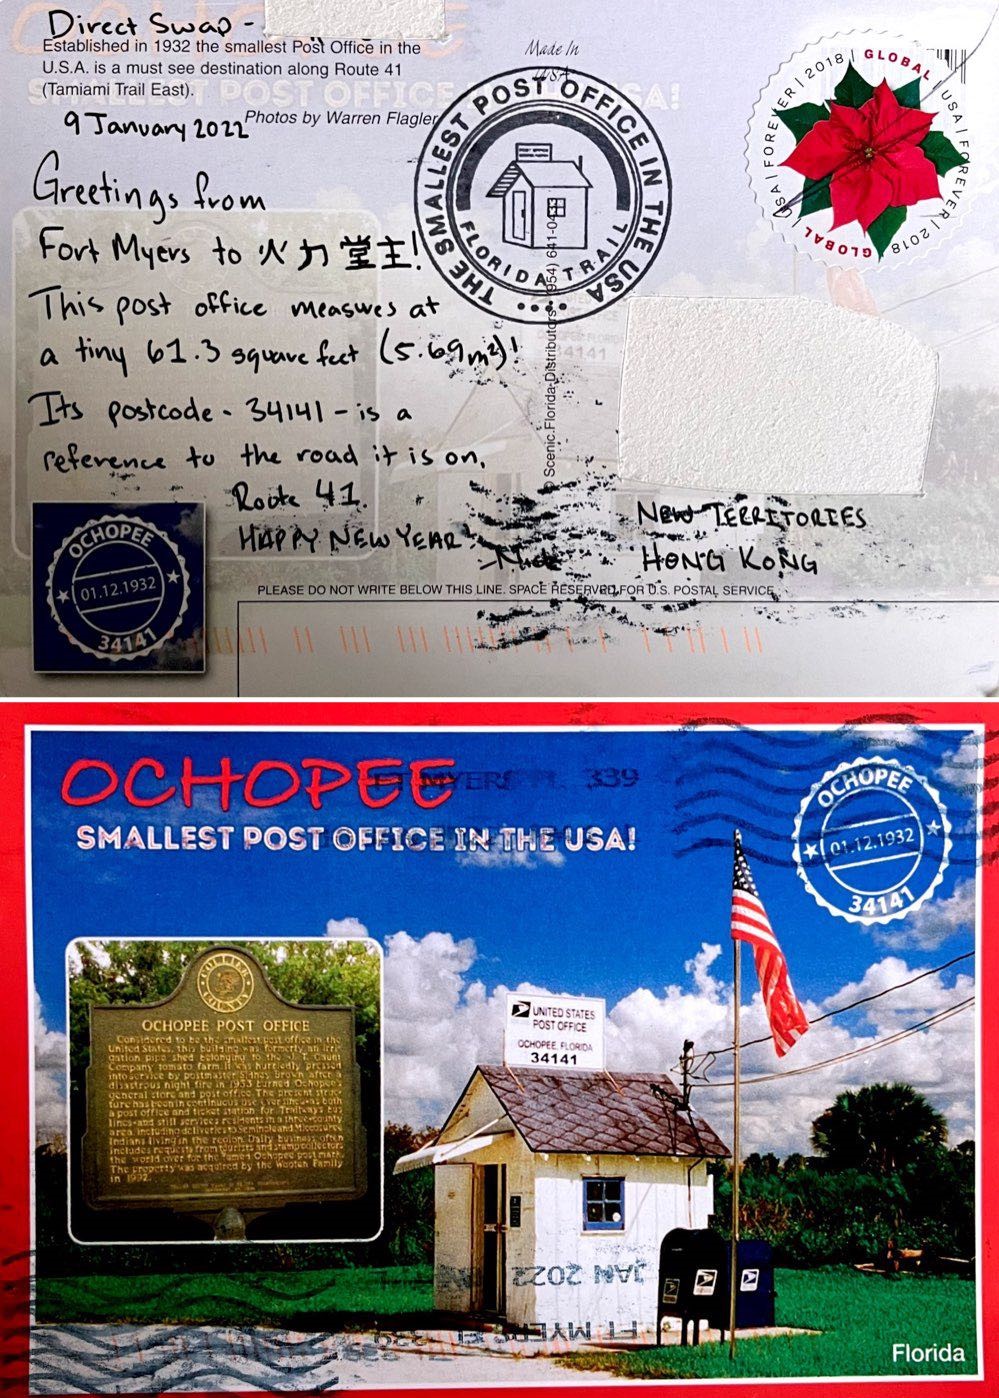 Direct Swap -
Established in 1932 the smallest Post Office in the
U.S.A. is a must see destination along Route 41
(Tamiami Trail East).
Photos by Warren Flagler
9 January 2022
Greetings from
Fort Myers to 火力堂主!
This post office measures at
a tiny 61.3 square feet (5.69m²)!
Its postcode - 34141 - is a
reference to the road it is on,
Route 41.
HAPPY NEW YEAR
Made In
USA
THE SMALLEST POST OFFICE IN THE USA
FLORIDA TRAIL
© Scenic Florida Distributors (954) 641-04
GLOBAL USA | FOREVER | 2018
GLOBAL USA | FOREVER | 2018
NEW TERRITORIES
HONG KONG
PLEASE DO NOT WRITE BELOW THIS LINE. SPACE RESERVED FOR U.S. POSTAL SERVICE
OCHOPEE
01.12.1932
34141
OCHOPEE
SMALLEST POST OFFICE IN THE USA!
FT MYERS FL 339
OCHOPEE
01.12.1932
34141
COLLIER
COUNTY
OCHOPEE POST OFFICE
Considered to be the smallest post office in the
United States, this building was formerly an irri-
gation pipe shed belonging to the J. T. Gaunt
Company tomato farm. It was hurriedly pressed
into service by postmaster Sidney Brown after a
disastrous night fire in 1953 burned Ochopee's
general store and post office. The present struc-
ture has been in continuous use ever since as both
a post office and ticket station for Trailways bus
lines and still services residents in a three-county
area, including deliveries to Seminole and Miccosukee
Indians living in the region. Daily business often
includes requests from tourists and stamp collectors
the world over for the famed Ochopee post mark.
The property was acquired by the Wooten Family
in 1992.
UNITED STATES
POST OFFICE
OCHOPEE, FLORIDA
34141
JAN 2022
FT MYERS FL 339
Florida